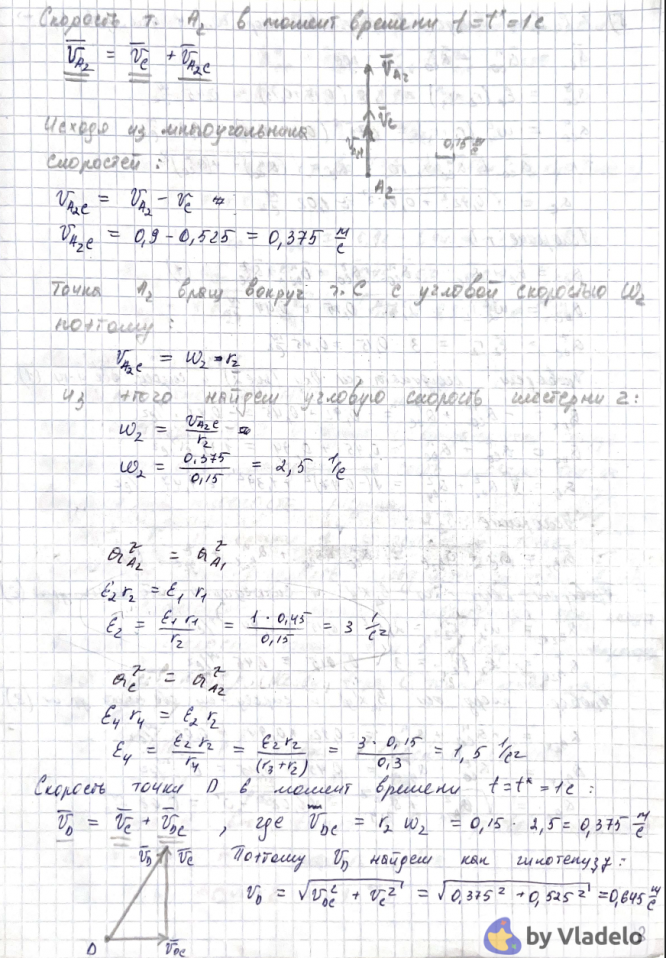 Скорость т. A₂ в момент времени t=t*=1c
V̅_A₂ = V̅_C + V̅_A₂C
V̅_A₂
V̅_C
0,15 м/с
A₂
Исходя из многоугольника
скоростей:
V_A₂C = V_A₂ − V_C =
V_A₂C = 0,9 − 0,525 = 0,375 м/с
Точка A₂ вращ вокруг т. C с угловой скоростью ω₂
поэтому:
V_A₂C = ω₂ · r₂
Из этого найдем угловую скорость шестерни 2:
ω₂ = V_A₂C / r₂ =
ω₂ = 0,375 / 0,15 = 2,5 1/с
a^τ_A₂ = a^τ_A₁
ε₂ r₂ = ε₁ r₁
ε₂ = ε₁ r₁ / r₂ = 1 · 0,45 / 0,15 = 3 1/с²
a^τ_C = a^τ_A₂
ε₄ r₄ = ε₂ r₂
ε₄ = ε₂ r₂ / r₄ = ε₂ r₂ / (r₃+r₂) = 3 · 0,15 / 0,3 = 1,5 1/с²
Скорость точки D в момент времени t=t*=1c:
V̅_D = V̅_C + V̅_DC , где V̅_DC = r₂ ω₂ = 0,15 · 2,5 = 0,375 м/с
V̅_D V̅_C Поэтому V_D найдем как гипотенузу:
V_D = √(V_DC² + V_C²) = √(0,375² + 0,525²) = 0,645 м/с
D V̅_DC
by Vladelo